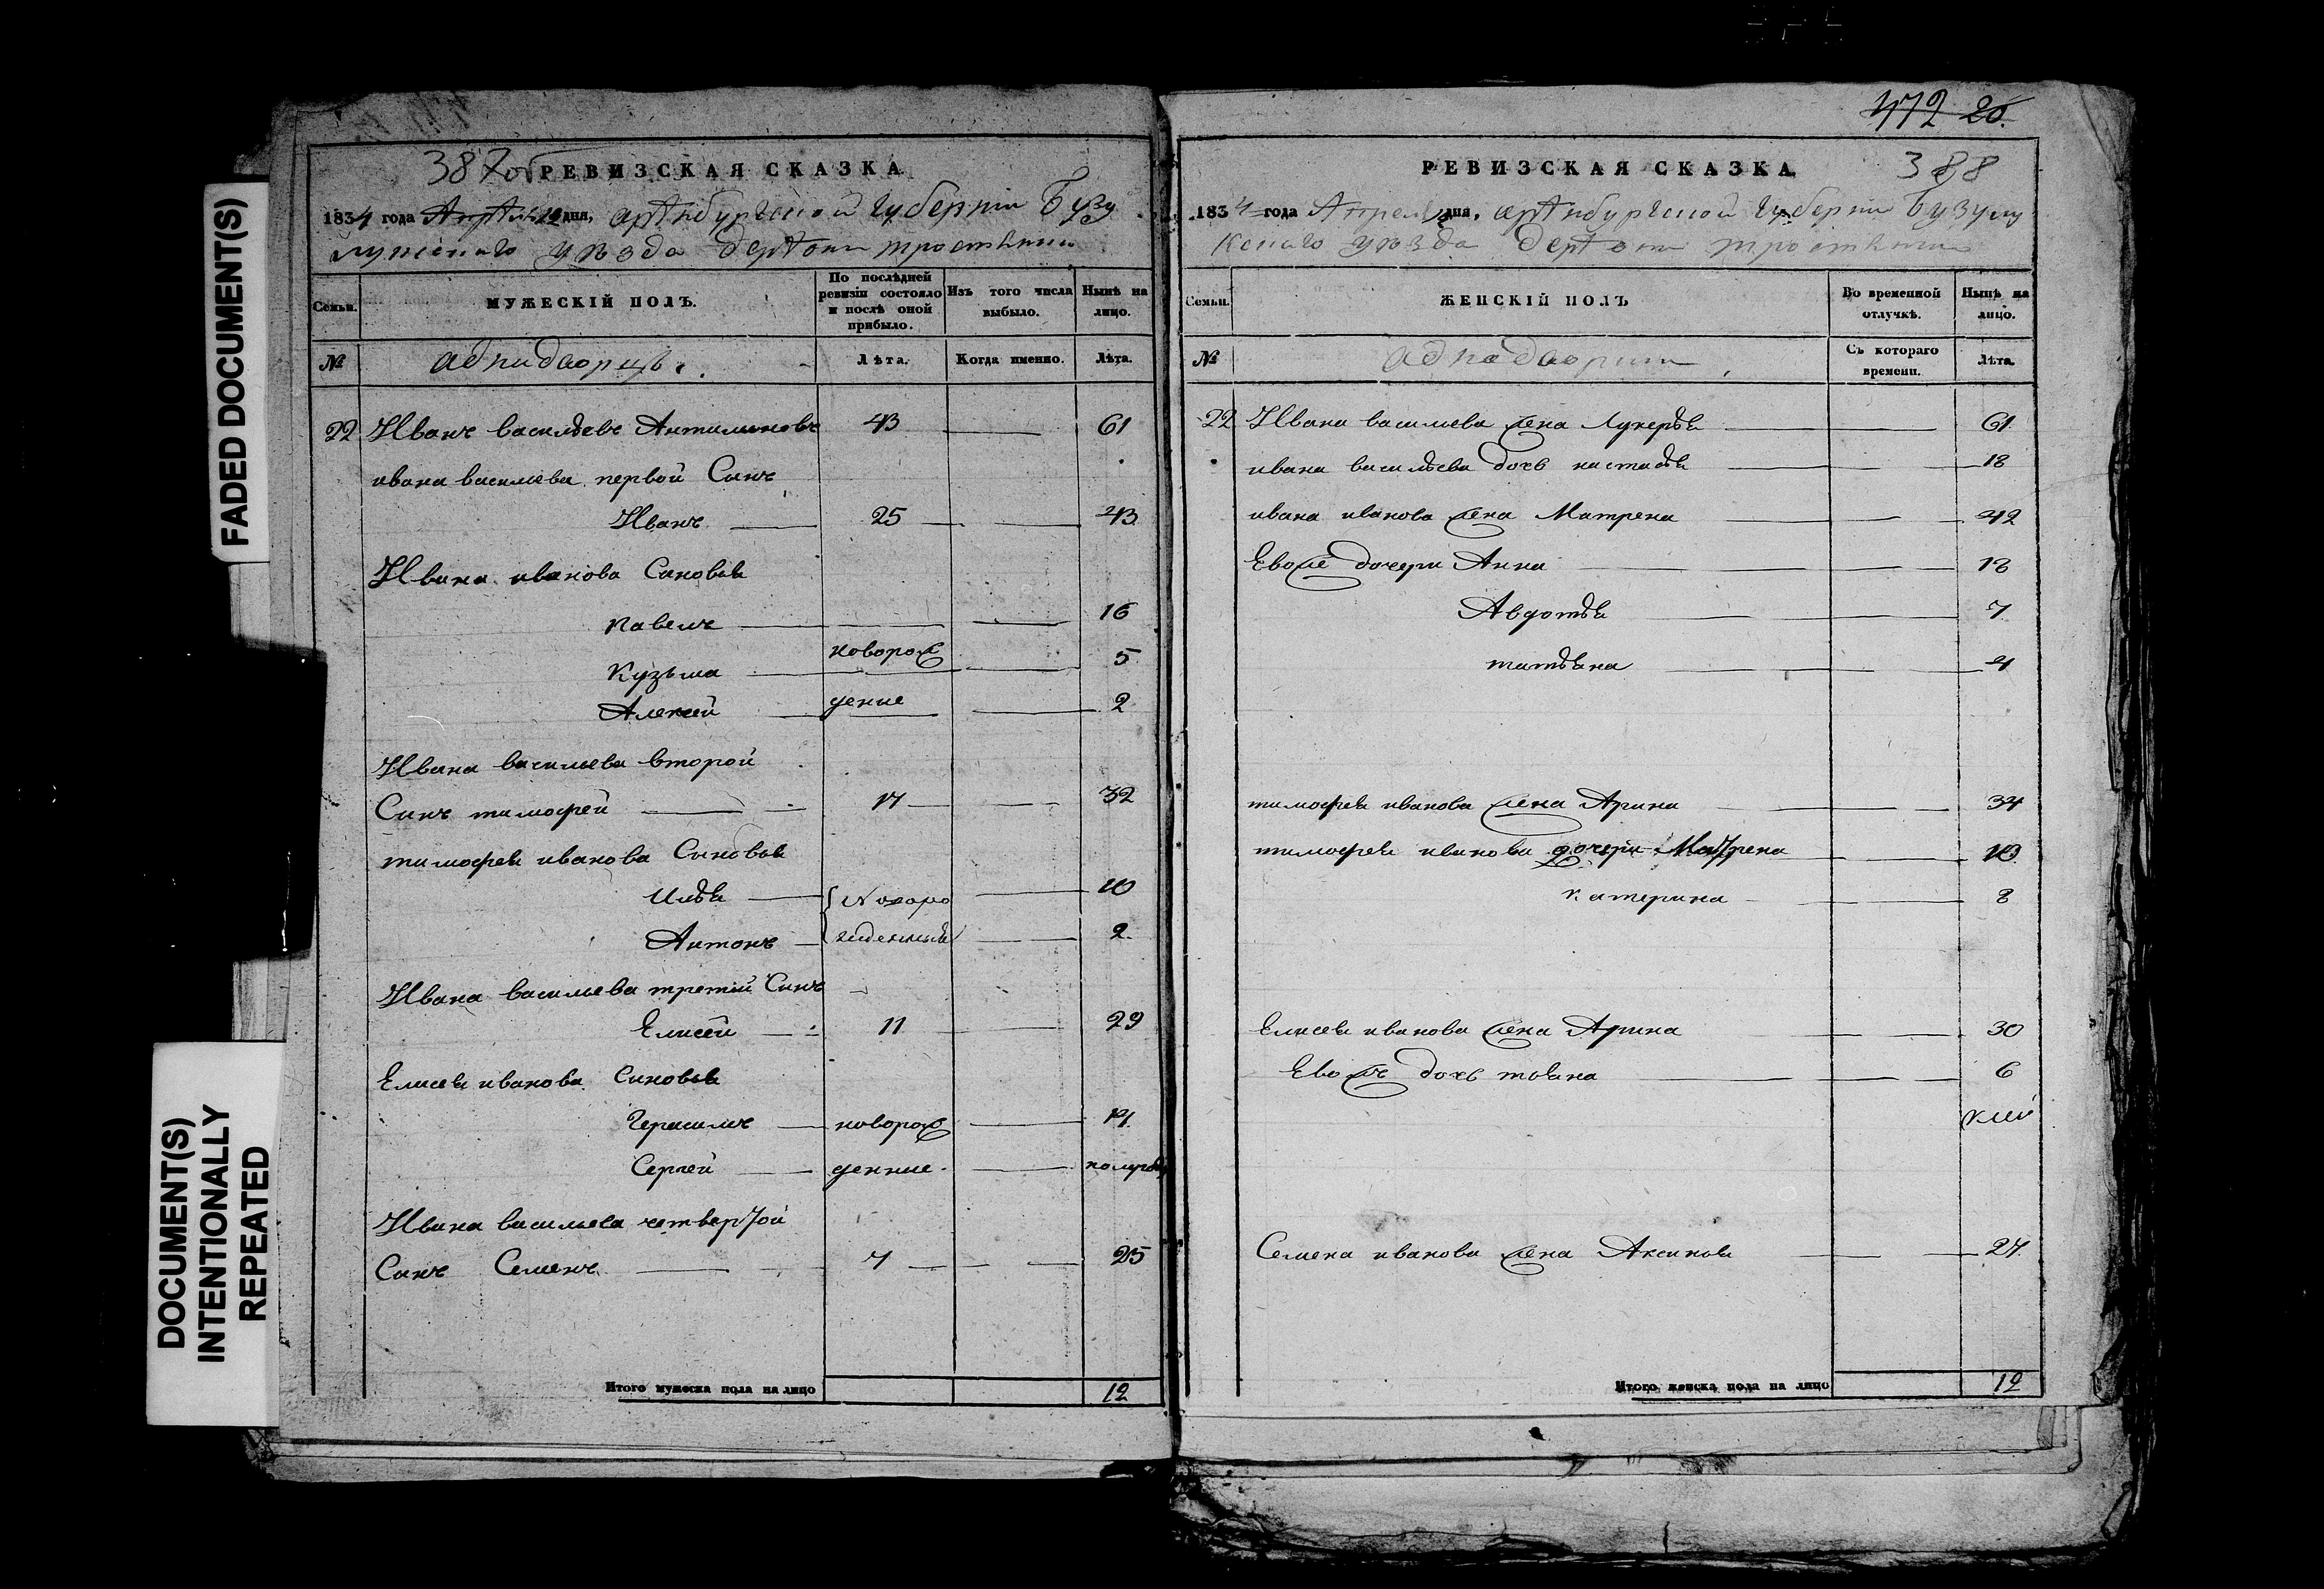 FADED DOCUMENT(S)
DOCUMENT(S)
INTENTIONALLY
REPEATED
387об РЕВИЗСКАЯ СКАЗКА
1834 года Апреля дня, аренбургской губернии Бузу
лукскаго уезда деревни тростянки
Семьи. МУЖЕСКІЙ ПОЛЪ. По послѣдней ревизіи состояло и послѣ оной прибыло. Изъ того числа выбыло. Нынѣ на лицо.
№ аднадворцы. Лѣта. Когда именно. Лѣта.
22 Иванъ васильевъ Антимоновъ 43 61
ивана васильева первой Сынъ
Иванъ 25 43
Ивана иванова Сыновья
павелъ 16
Кузьма новорож 5
Алексей дение 2
Ивана васильева второй
Сынъ тимофей 14 32
тимофея иванова Сыновья
Илья новоро 10
Антонъ 2
Ивана васильева третий Сынъ
Елисей 11 29
Елисея иванова Сыновья
Герасимъ новорож 14
Сергей дение полугоду
Ивана васильева четвертой
Сынъ Семенъ 7 25
Итого мужеска пола на лицо 12
472 20
РЕВИЗСКАЯ СКАЗКА 388
1834 года Апреля дня, аренбургской губерни Бузулу
кскаго уезда деревни тростянки
Семьи. ЖЕНСКІЙ ПОЛЪ Во временной отлучкѣ. Нынѣ на лицо.
№ аднадворцы Съ котораго времени. Лѣта.
22 Ивана васильева жена Лукерья 61
ивана васильева дочь настасья 18
ивана иванова жена Матрена 42
Евоже дочери Анна 18
Авдотья 7
татьяна 4
тимофея иванова жена Арина 34
тимофея иванова дочери Матрена 13
катерина 8
Елисея иванова жена Арина 30
Евожъ дочь 6
Семена иванова жена Аксинья 27
Итого женска пола на лицо 12